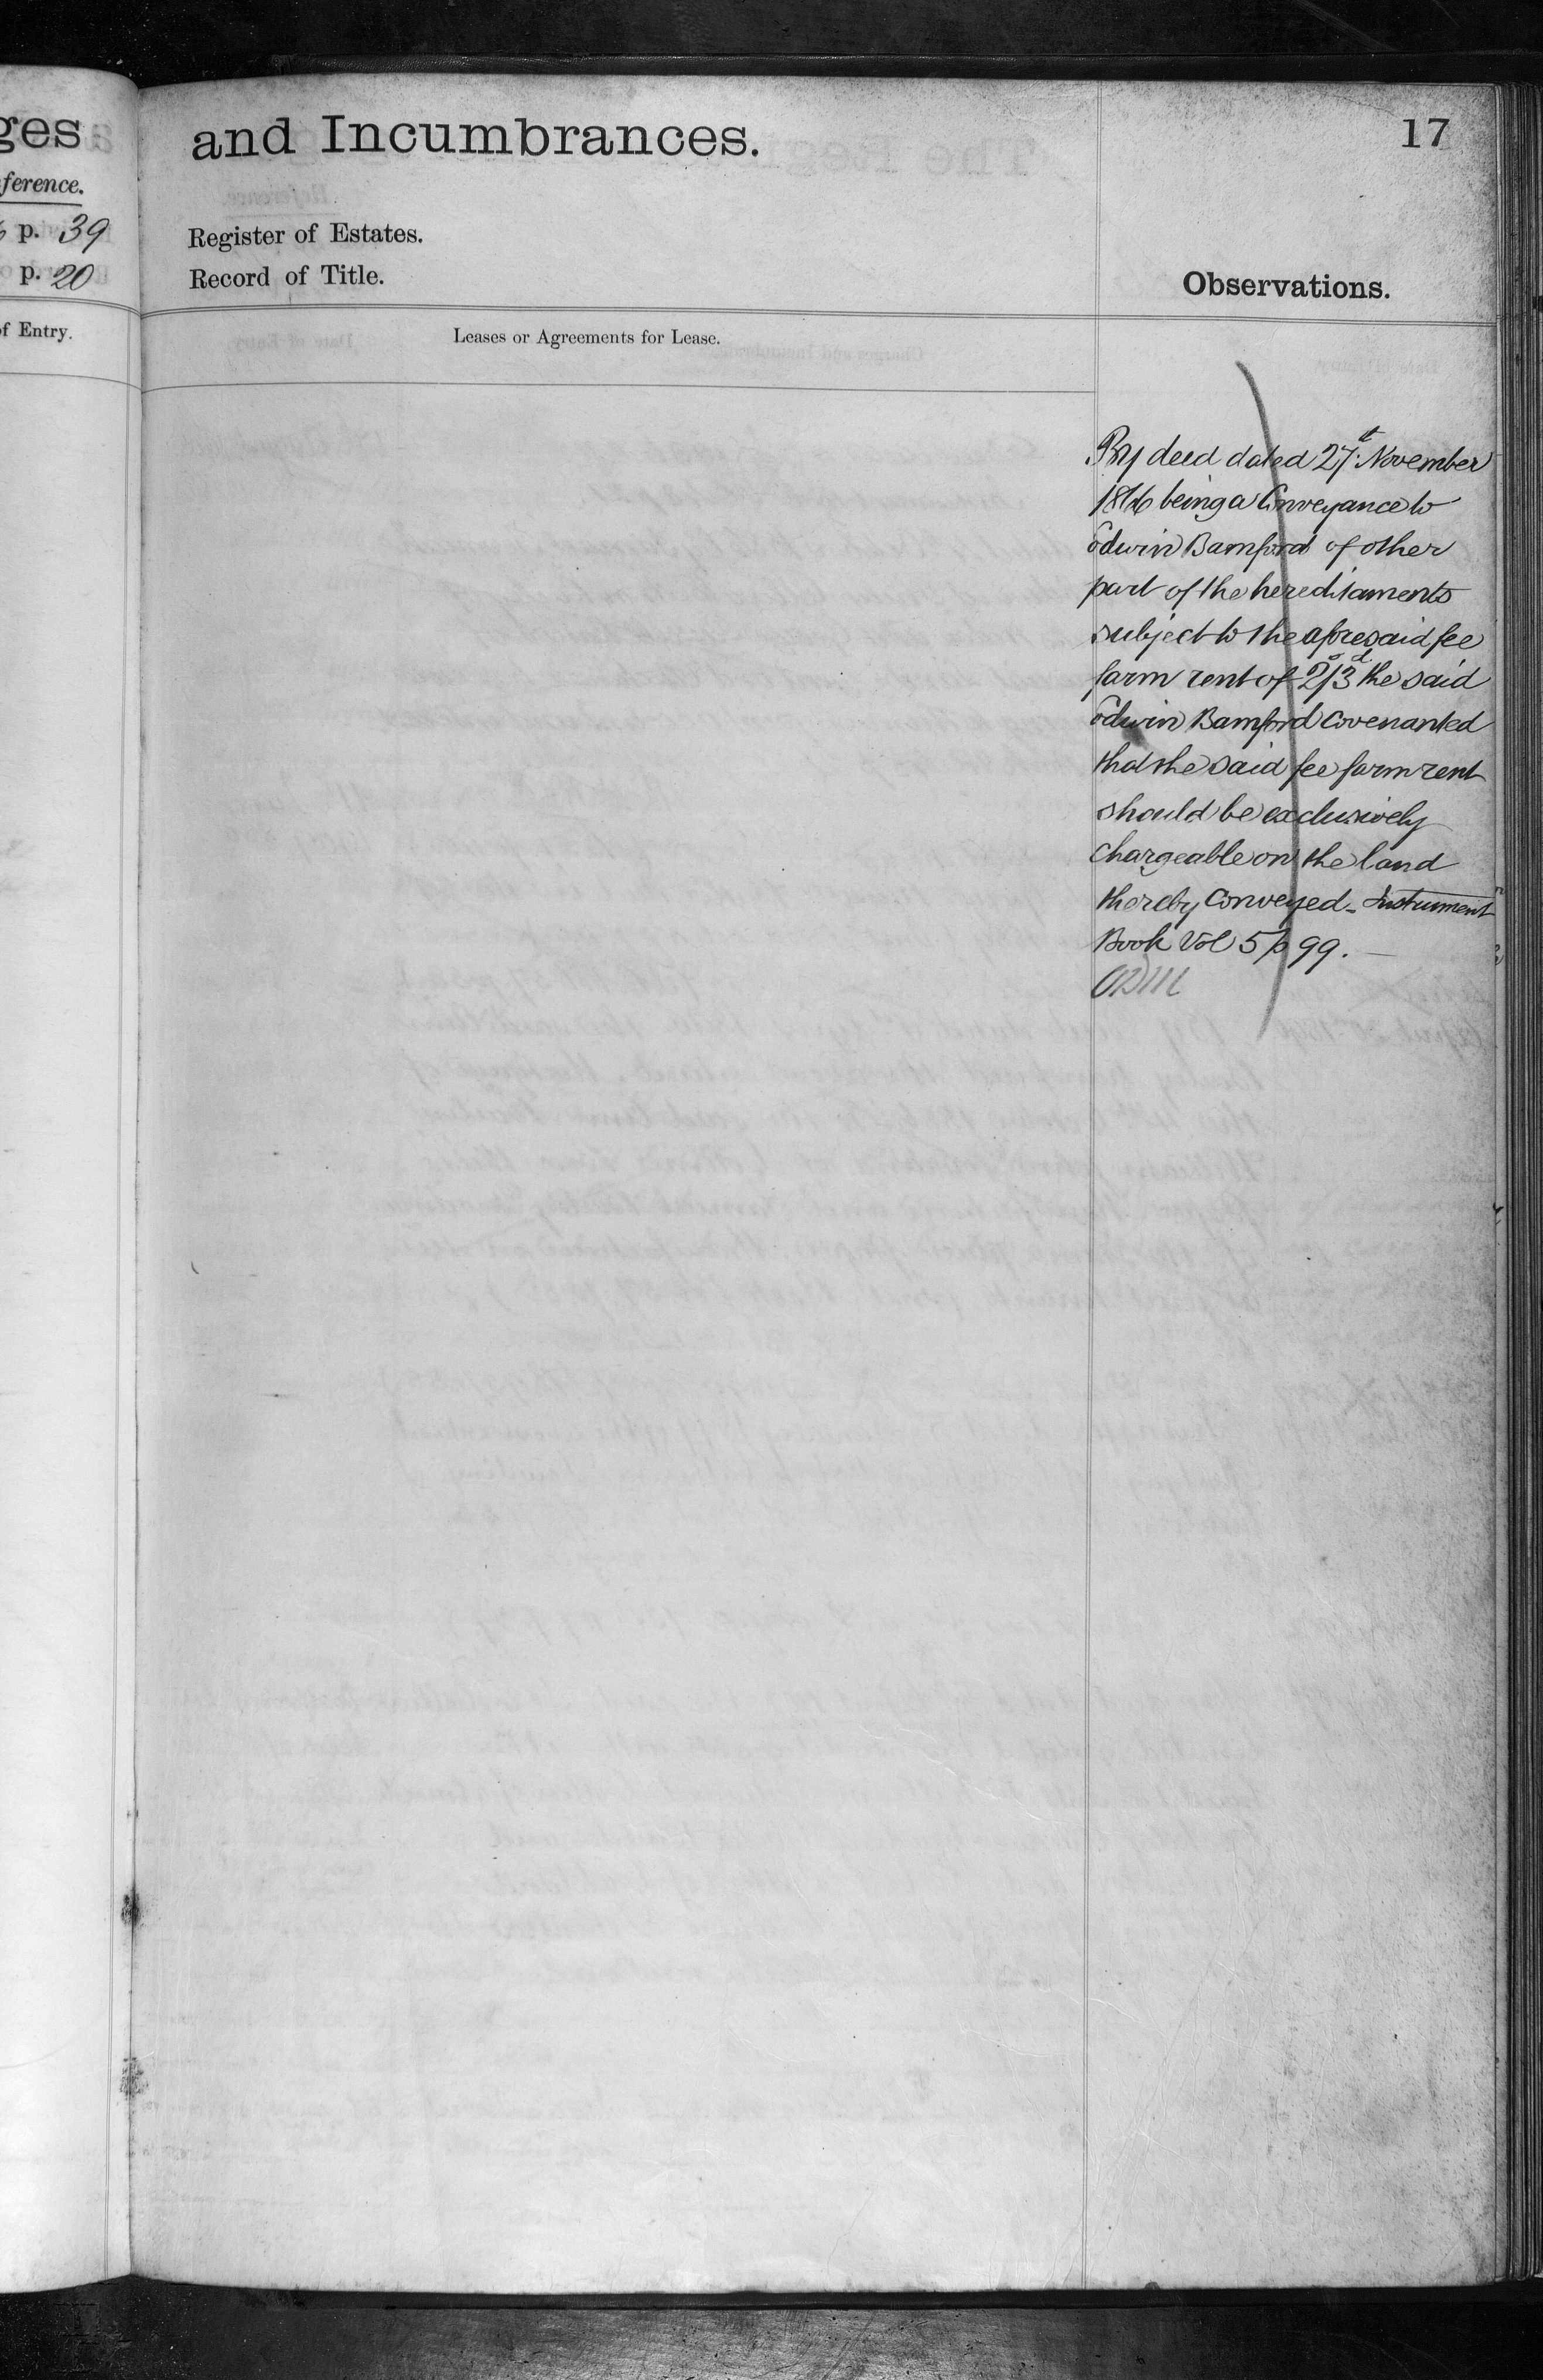 ges
ference.
p. 39
p. 20
of Entry.
and Incumbrances.
17
Register of Estates.
Record of Title.
Observations.
Leases or Agreements for Lease.
By deed dated 27th November
being a Conveyance to
Edwin Bamford of other
part of the hereditaments
subject to the aforesaid fee
farm rent of 2s/3d the said
Edwin Bamford Covenanted
that the said fee farm rent
should be exclusively
chargeable on the land
thereby Conveyed - Instrument
Book Vol 5 p 99.